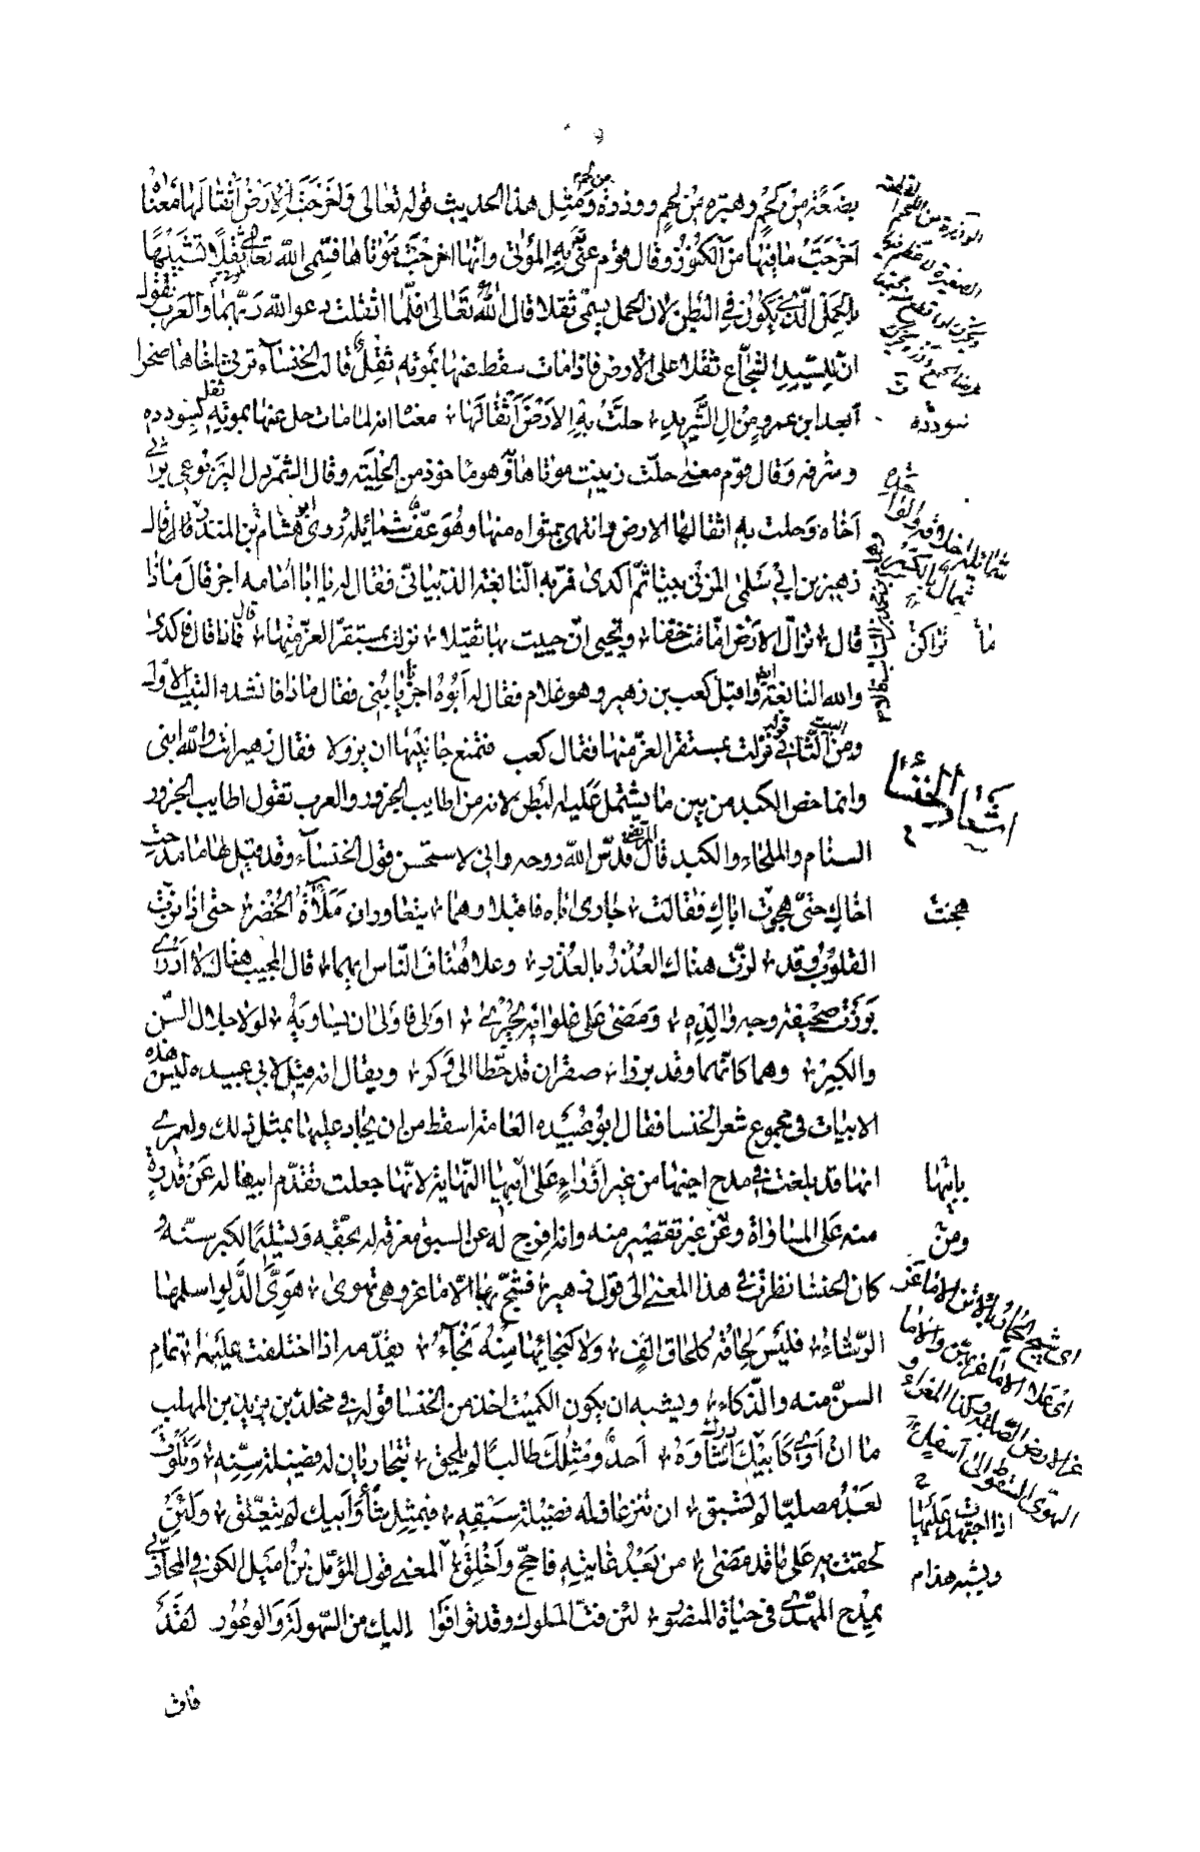 بضعة من لحم وهبرة من لحم ووذرة من لحم ومثل هذا الحديث قوله تعالى وَاَخْرَجَتِ الاَرْضُ اَثْقالَهَا معناه
اخرجت ما فيها من الكنوز وقال قوم عنى به الموتى وانها اخرجت موتاها فسمى الله تعالى ثقلا تشبيها
بالحمل الذى يكون فى البطن لان الحمل يسمى ثقلا قال الله تعالى فلما اثقلت دعوا الله ربهما والعرب تقول
ان للسيد الشجاع ثقلا على الارض فاذا مات سقط عنها بموته ثقل قالت الخنساء ترثى اخاها صخرا
أبعد ابن عمرو من ال الشريد حلت به الارض اثقالها معناه انه لما مات حل عنها بموته ثقل لسودده
وشرفه وقال قوم معنى حلت زينت موتاها به وهو ماخوذ من الحلية وقال الشمردل اليربوعى يرثى
اخاه وحلت به اثقالها الارض وانتهى بمثواه منها وهو عف شمائله وروى هشام بن المنذر قال قال
زهير بن ابى سلمى المزنى بيتا ثم اكدى فمر به النابغة الذبيانى فقال له يا ابا امامه اجز قال ماذا
قال تزال الارض امّا مت خفا وتحيى ان حييت بها ثقيلا نزلت بمستقر العز منها فماذا قال فاكدى
والله النابغة واقبل كعب بن زهير وهو غلام فقال له ابوه اجز يا بنى فقال ماذا فانشده البيت الاول
ومن الثانى قوله نزلت بمستقر العز منها فقال كعب فتمنع جانبيها ان يزولا فقال زهير انت والله ابنى
وانما خص الكبد من بين ما تشتمل عليه البطن لانه من اطايب الجزور والعرب تقول اطايب الجزور
السنام والملحاء والكبد قال المرتضى قدس الله روحه وانى لاستحسن قول الخنساء وقد قيل لها ما مدحت
اخاك حتى هجوت اباك فقالت جارى اباه فاقبلا وهما يتعاوران ملاءة الحضر حتى اذا نزت
القلوب وقد لزت هناك العذر بالعذر وعلا هتاف الناس ايهما قال المجيب هناك لا ادرى
برزت صحيفة وجه والده ومضى على غلوائه يجرى اولى فاولى ان يساويه لولا جلال السن
والكبر وهما كانهما وقد برزا صقران قد حطا الى وكر ويقال انه قيل لابى عبيده ليس هذه
الابيات فى مجموع شعر الخنسا فقال ابو عبيده العامة اسقط من ان يجاد عليها بمثل ذلك ولعمرى
انها قد بلغت فى مدح اخيها من غير ازراء على ابيها النهاية لانها جعلت تقدم ابيها له عن قدرة
منه على المساواة وعن غير تقصير منه وانه افرج له عن السبق معرفة له بحقه وتسليما لكبر سنه
كان الخنسا نظرت فى هذا المعنى الى قول زهير فشج بها الاماعز وهى تهوى هوى الدلو اسلمها
الرشاء فليس لحاقه كلحاق الف ولا كنجائها منه نجاء يقدمه اذا اختلفت عليها تمام
السن منه والذكاء ويشبه ان يكون الكميت اخذ من الخنسا قوله فى مخلد بن يزيد بن المهلب
ما ان ارى كابيك ادرك شأوه احد ومثلك طالبا لم يلحق يتجاريان له فضيلة سنه وتلوت
بعد مصليا لم تسبق ان تنزعا فله فضيلة سبقه فبمثل شأو ابيك لم يتعلق ولئن
لحقت به على ما قد مضى من بعد غايته فاحج واخلق المعنى قول المؤمل بن اميل الكوفى المحاربى
يمدح المهدى فى حياة المنصور لئن فت الملوك وقد توافوا اليك من السهولة والوعور لقد
فات
سودده
ما
تراكن
اشعار الخنساء
هجنت
بابيها
ومن
اذا اجتهدت عليها
ويشبه هذا م